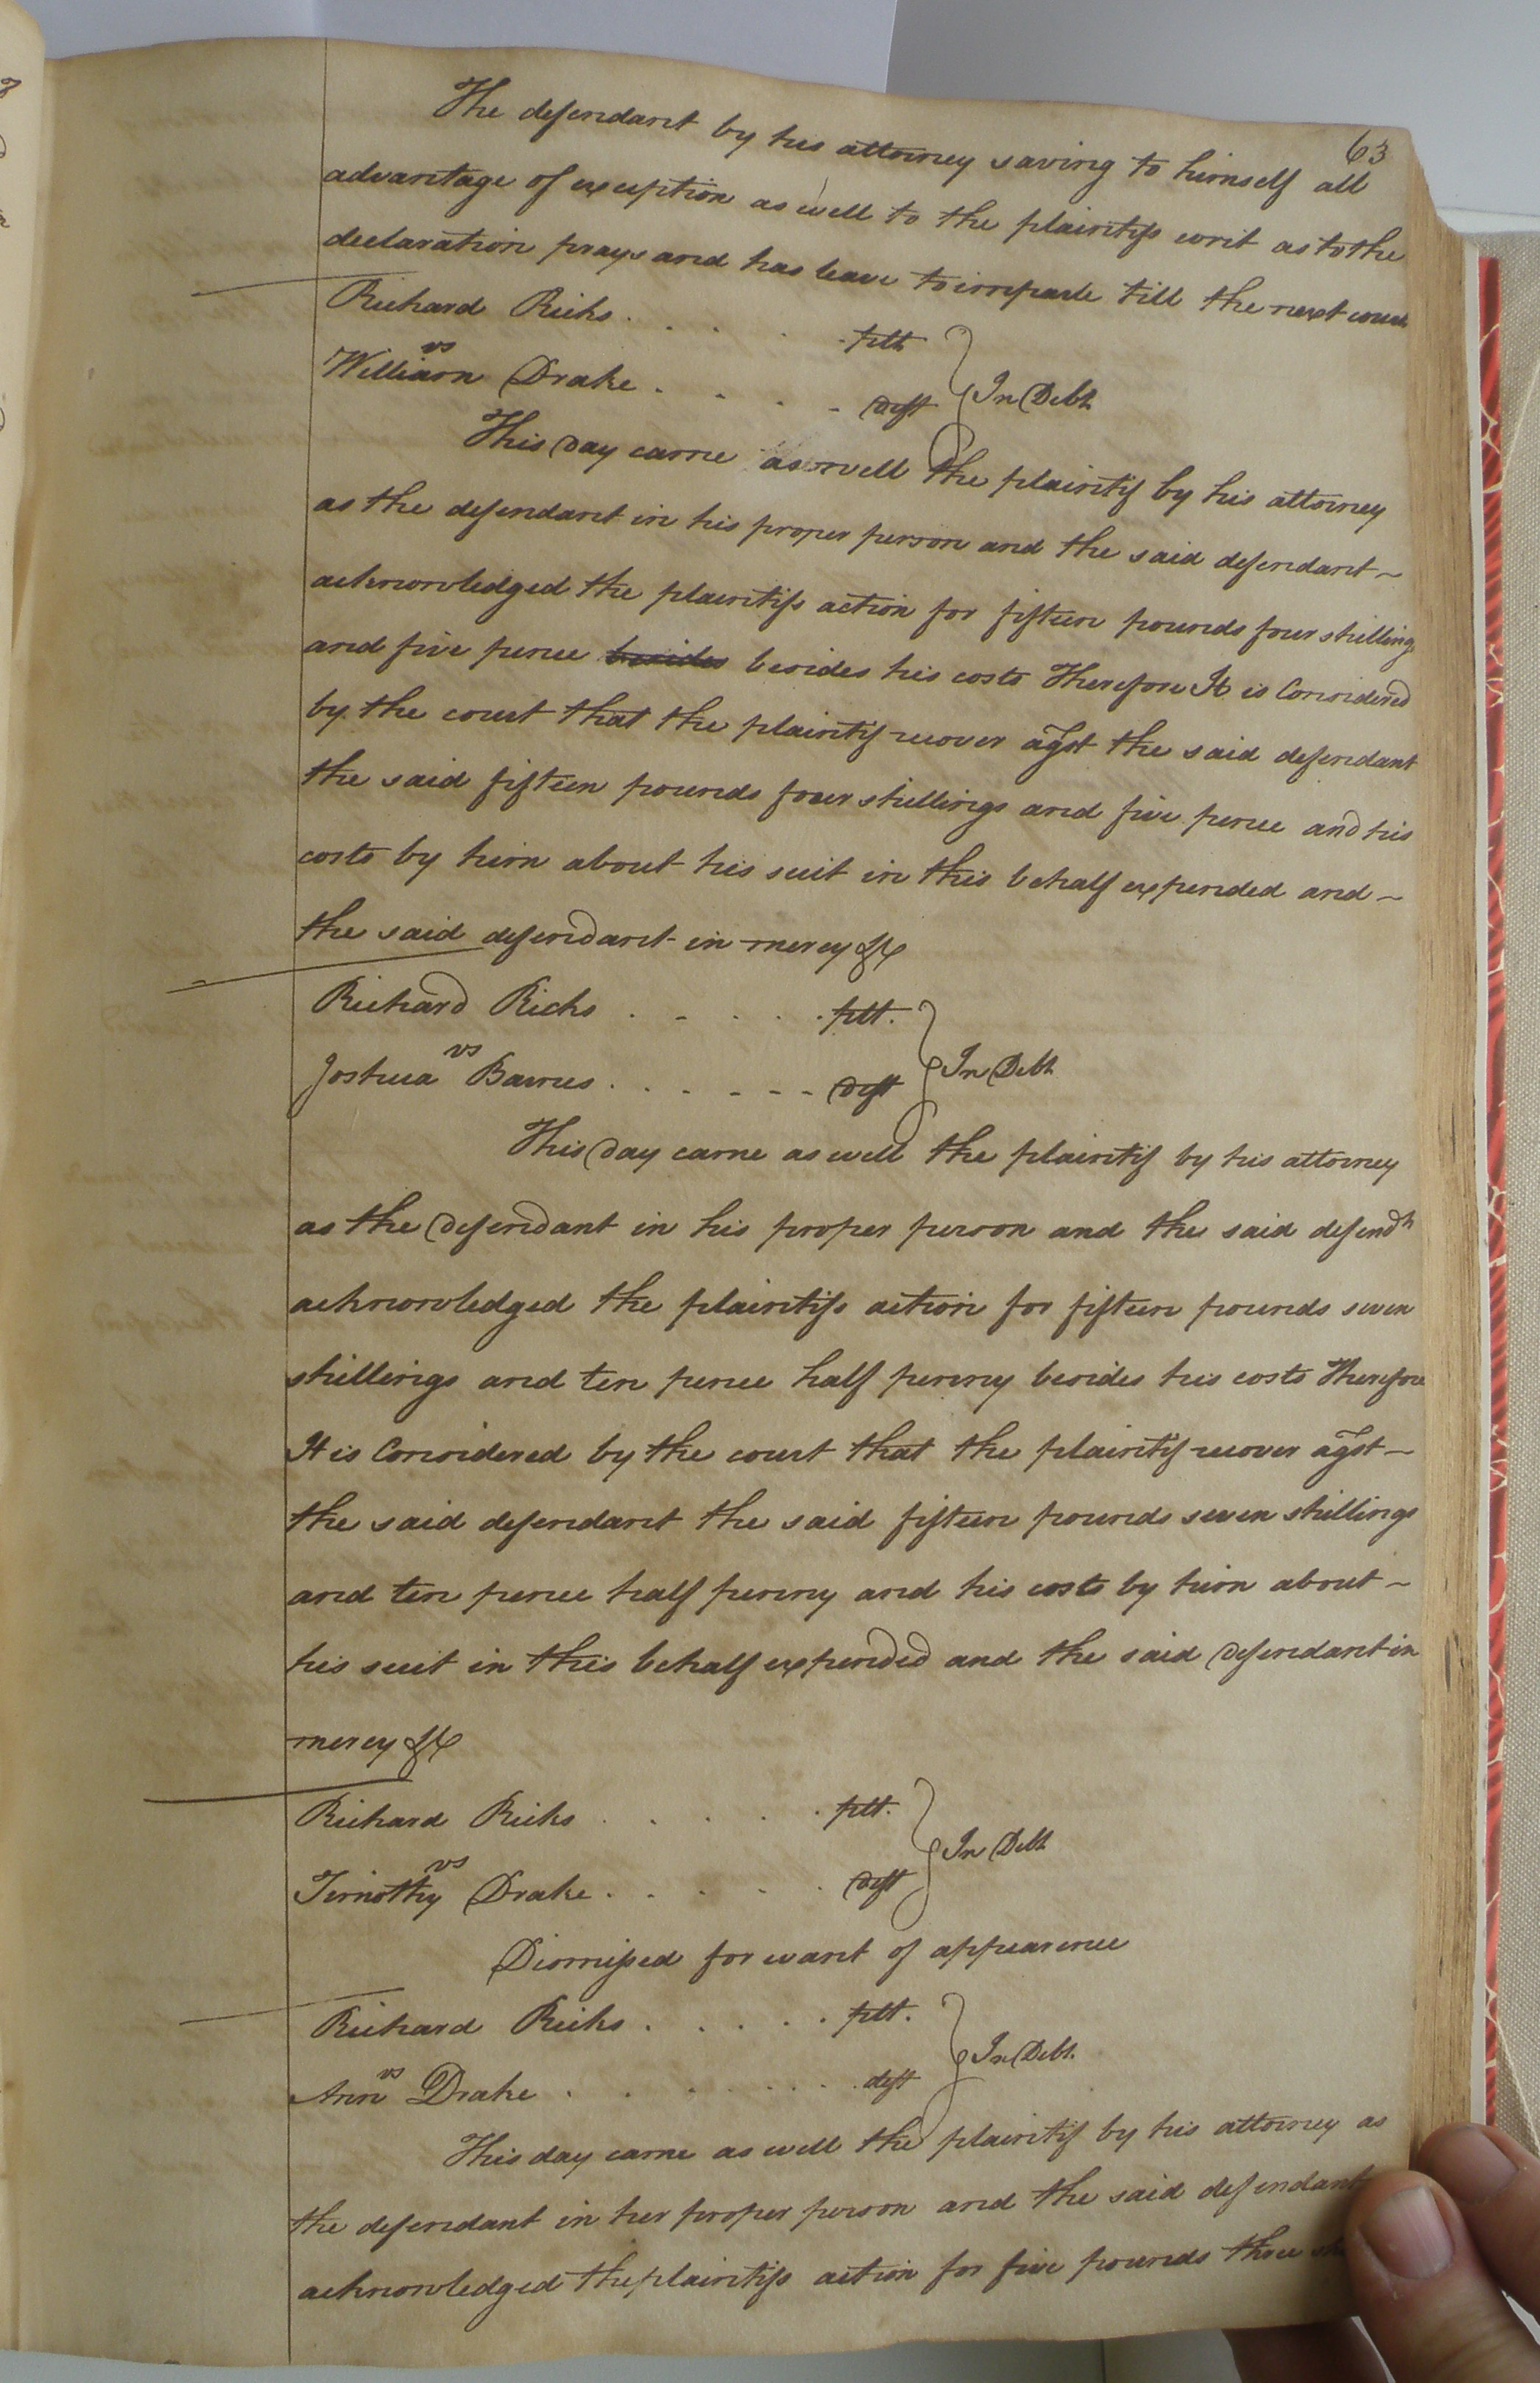 63
The defendant by his attorney saving to himself all
advantage of exception as well to the plaintifs writ as to the
declaration prays and has leave to imparle till the next court
Richard Ricks . . . . . plt
vs
William Drake . . . . . deft } In Debt
This day came as well the plaintif by his attorney
as the defendant in his proper person and the said defendant
acknowledged the plaintifs action for fifteen pounds four shillings
and five pence besides besides his costs Therefore It is Considered
by the court that the plaintif recover agst the said defendant
the said fifteen pounds four shillings and five pence and his
costs by him about his suit in this behalf expended and
the said defendant in mercy &c
Richard Ricks . . . . . plt.
vs
Joshua Barnes . . . . . . deft } In Debt
This day came as well the plaintif by his attorney
as the defendant in his proper person and the said defendt
acknowledged the plaintifs action for fifteen pounds seven
shillings and ten pence half penny besides his costs Therefore
It is Considered by the court that the plaintif recover agst
the said defendant the said fifteen pounds seven shillings
and ten pence half penny and his costs by him about
his suit in this behalf expended and the said defendant in
mercy &c
Richard Ricks . . . . . plt.
vs
Timothy Drake . . . . . deft } In Debt
Dismissed for want of appearence
Richard Ricks . . . . . plt.
vs
Ann Drake . . . . . . deft } In Debt
This day came as well the plaintif by his attorney as
the defendant in her proper person and the said defendant
acknowledged the plaintifs action for five pounds three